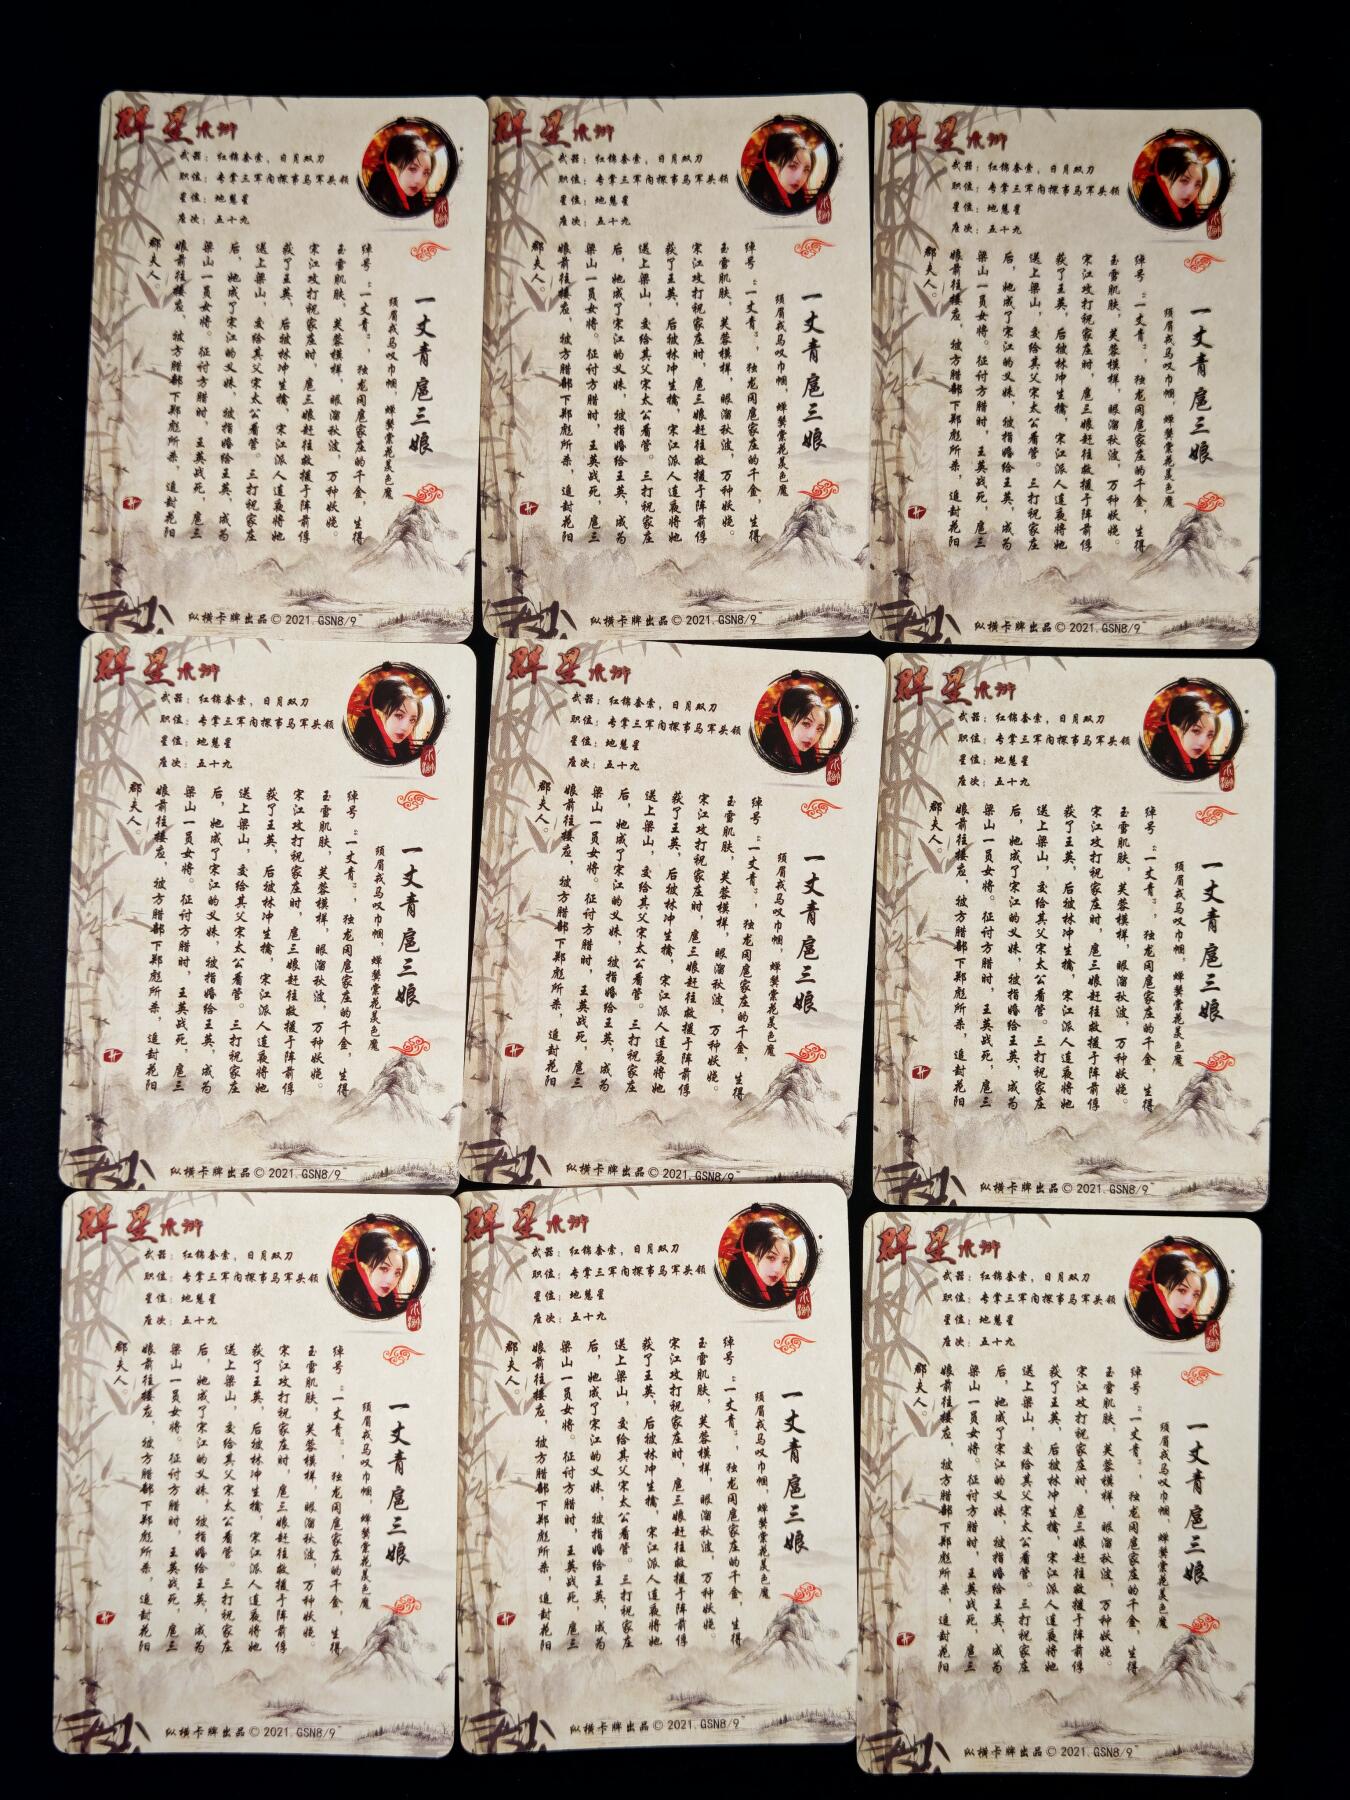 群星水浒
武器：红锦套索，日月双刀
职位：专掌三军内探事马军头领
星位：地慧星
座次：五十九
水浒
一丈青扈三娘
须眉戎马叹巾帼，蝉鬓棠花羡色魔
绰号：“一丈青”，独龙冈扈家庄的千金，生得
玉雪肌肤，芙蓉模样，眼溜秋波，万种妖娆。
宋江攻打祝家庄时，扈三娘赶往救援于阵前俘
获了王英，后被林冲生擒，宋江派人连夜将她
送上梁山，交给其父宋太公看管。三打祝家庄
后，她成了宋江的义妹，被指婚给王英，成为
梁山一员女将。征讨方腊时，王英战死，扈三
娘前往接应，被方腊部下郑彪所杀，追封花阳
郡夫人。
纵横卡牌出品©2021.GSN8/9
群星水浒
武器：红锦套索，日月双刀
职位：专掌三军内探事马军头领
星位：地慧星
座次：五十九
水浒
一丈青扈三娘
须眉戎马叹巾帼，蝉鬓棠花羡色魔
绰号：“一丈青”，独龙冈扈家庄的千金，生得
玉雪肌肤，芙蓉模样，眼溜秋波，万种妖娆。
宋江攻打祝家庄时，扈三娘赶往救援于阵前俘
获了王英，后被林冲生擒，宋江派人连夜将她
送上梁山，交给其父宋太公看管。三打祝家庄
后，她成了宋江的义妹，被指婚给王英，成为
梁山一员女将。征讨方腊时，王英战死，扈三
娘前往接应，被方腊部下郑彪所杀，追封花阳
郡夫人。
纵横卡牌出品©2021.GSN8/9
群星水浒
武器：红锦套索，日月双刀
职位：专掌三军内探事马军头领
星位：地慧星
座次：五十九
水浒
一丈青扈三娘
须眉戎马叹巾帼，蝉鬓棠花羡色魔
绰号：“一丈青”，独龙冈扈家庄的千金，生得
玉雪肌肤，芙蓉模样，眼溜秋波，万种妖娆。
宋江攻打祝家庄时，扈三娘赶往救援于阵前俘
获了王英，后被林冲生擒，宋江派人连夜将她
送上梁山，交给其父宋太公看管。三打祝家庄
后，她成了宋江的义妹，被指婚给王英，成为
梁山一员女将。征讨方腊时，王英战死，扈三
娘前往接应，被方腊部下郑彪所杀，追封花阳
郡夫人。
纵横卡牌出品©2021.GSN8/9
群星水浒
武器：红锦套索，日月双刀
职位：专掌三军内探事马军头领
星位：地慧星
座次：五十九
水浒
一丈青扈三娘
须眉戎马叹巾帼，蝉鬓棠花羡色魔
绰号：“一丈青”，独龙冈扈家庄的千金，生得
玉雪肌肤，芙蓉模样，眼溜秋波，万种妖娆。
宋江攻打祝家庄时，扈三娘赶往救援于阵前俘
获了王英，后被林冲生擒，宋江派人连夜将她
送上梁山，交给其父宋太公看管。三打祝家庄
后，她成了宋江的义妹，被指婚给王英，成为
梁山一员女将。征讨方腊时，王英战死，扈三
娘前往接应，被方腊部下郑彪所杀，追封花阳
郡夫人。
纵横卡牌出品©2021.GSN8/9
群星水浒
武器：红锦套索，日月双刀
职位：专掌三军内探事马军头领
星位：地慧星
座次：五十九
水浒
一丈青扈三娘
须眉戎马叹巾帼，蝉鬓棠花羡色魔
绰号：“一丈青”，独龙冈扈家庄的千金，生得
玉雪肌肤，芙蓉模样，眼溜秋波，万种妖娆。
宋江攻打祝家庄时，扈三娘赶往救援于阵前俘
获了王英，后被林冲生擒，宋江派人连夜将她
送上梁山，交给其父宋太公看管。三打祝家庄
后，她成了宋江的义妹，被指婚给王英，成为
梁山一员女将。征讨方腊时，王英战死，扈三
娘前往接应，被方腊部下郑彪所杀，追封花阳
郡夫人。
纵横卡牌出品©2021.GSN8/9
群星水浒
武器：红锦套索，日月双刀
职位：专掌三军内探事马军头领
星位：地慧星
座次：五十九
水浒
一丈青扈三娘
须眉戎马叹巾帼，蝉鬓棠花羡色魔
绰号：“一丈青”，独龙冈扈家庄的千金，生得
玉雪肌肤，芙蓉模样，眼溜秋波，万种妖娆。
宋江攻打祝家庄时，扈三娘赶往救援于阵前俘
获了王英，后被林冲生擒，宋江派人连夜将她
送上梁山，交给其父宋太公看管。三打祝家庄
后，她成了宋江的义妹，被指婚给王英，成为
梁山一员女将。征讨方腊时，王英战死，扈三
娘前往接应，被方腊部下郑彪所杀，追封花阳
郡夫人。
纵横卡牌出品©2021.GSN8/9
群星水浒
武器：红锦套索，日月双刀
职位：专掌三军内探事马军头领
星位：地慧星
座次：五十九
水浒
一丈青扈三娘
须眉戎马叹巾帼，蝉鬓棠花羡色魔
绰号：“一丈青”，独龙冈扈家庄的千金，生得
玉雪肌肤，芙蓉模样，眼溜秋波，万种妖娆。
宋江攻打祝家庄时，扈三娘赶往救援于阵前俘
获了王英，后被林冲生擒，宋江派人连夜将她
送上梁山，交给其父宋太公看管。三打祝家庄
后，她成了宋江的义妹，被指婚给王英，成为
梁山一员女将。征讨方腊时，王英战死，扈三
娘前往接应，被方腊部下郑彪所杀，追封花阳
郡夫人。
纵横卡牌出品©2021.GSN8/9
群星水浒
武器：红锦套索，日月双刀
职位：专掌三军内探事马军头领
星位：地慧星
座次：五十九
水浒
一丈青扈三娘
须眉戎马叹巾帼，蝉鬓棠花羡色魔
绰号：“一丈青”，独龙冈扈家庄的千金，生得
玉雪肌肤，芙蓉模样，眼溜秋波，万种妖娆。
宋江攻打祝家庄时，扈三娘赶往救援于阵前俘
获了王英，后被林冲生擒，宋江派人连夜将她
送上梁山，交给其父宋太公看管。三打祝家庄
后，她成了宋江的义妹，被指婚给王英，成为
梁山一员女将。征讨方腊时，王英战死，扈三
娘前往接应，被方腊部下郑彪所杀，追封花阳
郡夫人。
纵横卡牌出品©2021.GSN8/9
群星水浒
武器：红锦套索，日月双刀
职位：专掌三军内探事马军头领
星位：地慧星
座次：五十九
水浒
一丈青扈三娘
须眉戎马叹巾帼，蝉鬓棠花羡色魔
绰号：“一丈青”，独龙冈扈家庄的千金，生得
玉雪肌肤，芙蓉模样，眼溜秋波，万种妖娆。
宋江攻打祝家庄时，扈三娘赶往救援于阵前俘
获了王英，后被林冲生擒，宋江派人连夜将她
送上梁山，交给其父宋太公看管。三打祝家庄
后，她成了宋江的义妹，被指婚给王英，成为
梁山一员女将。征讨方腊时，王英战死，扈三
娘前往接应，被方腊部下郑彪所杀，追封花阳
郡夫人。
纵横卡牌出品©2021.GSN8/9